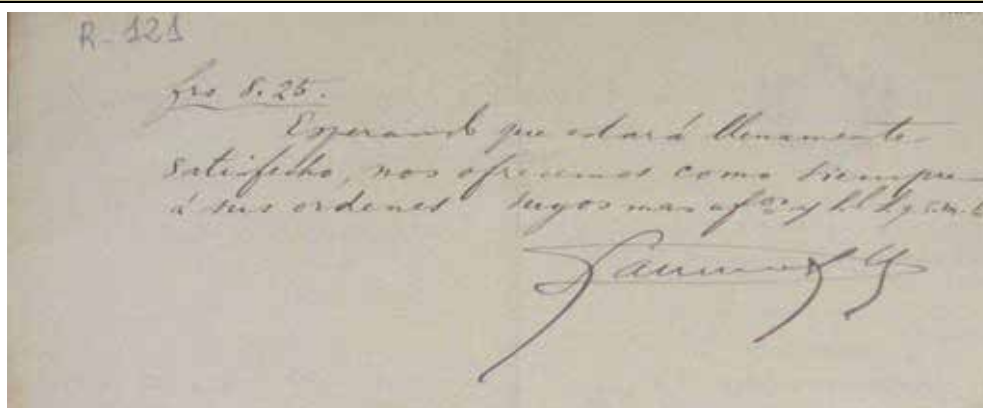 R-121
frs 8.25.
Esperando que estará llenamente
satisfecho, nos ofrecemos como siempre
á sus ordenes suyos mas afmos y